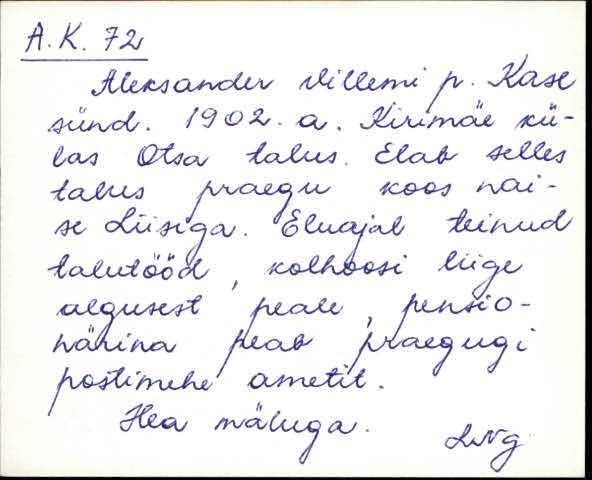 A. K. 72
Aleksander Villemi p. Kase
sünd. 1902. a. Kirimäe kü-
las Otsa talus. Elab selles
talus praegu koos nai-
se Liisiga. Eluajal teinud
talutööd, kolhoosi liige
algusest peale, pensio-
närina peab praegugi
postimehe ametit.
Hea mäluga.